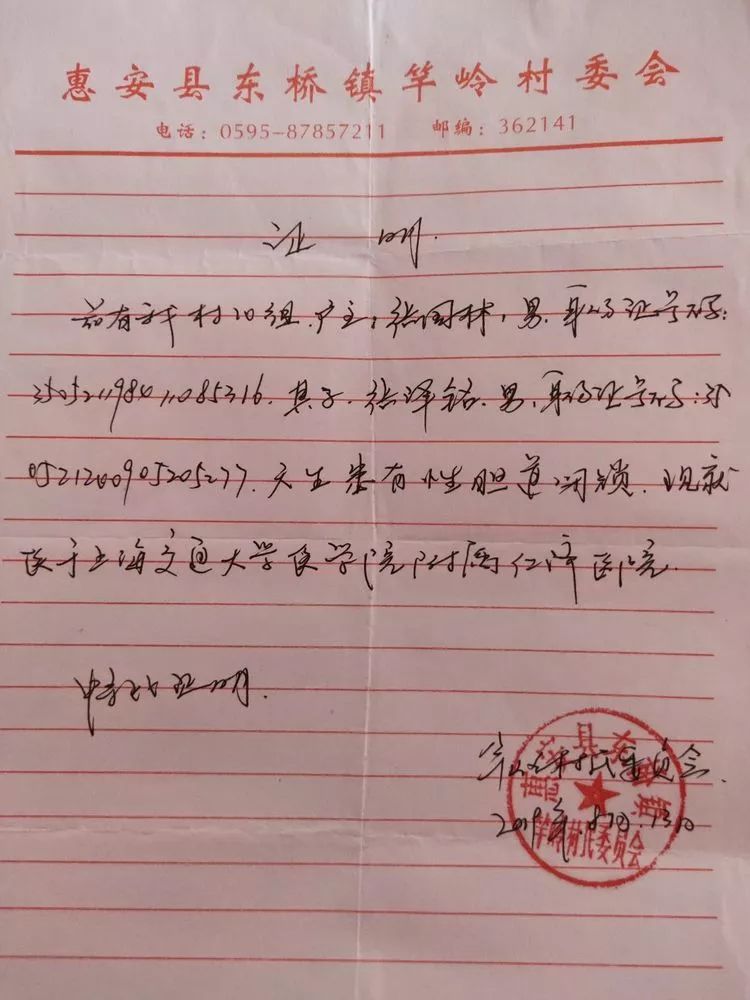 惠安县东桥镇竿岭村委会
电话：0595-87857211 邮编：362141
证 明.
兹有我村10组.户主：张国林，男.身份证号码：
350521198411085316.其子.张烨铭.男.身份证号码:35
0521200905205277.天生患有性胆道闭锁.现就
医于上海交通大学医学院附属仁济医院.
特此证明.
竿岭村民委员会.
惠安县东桥镇
竿岭村民委员会